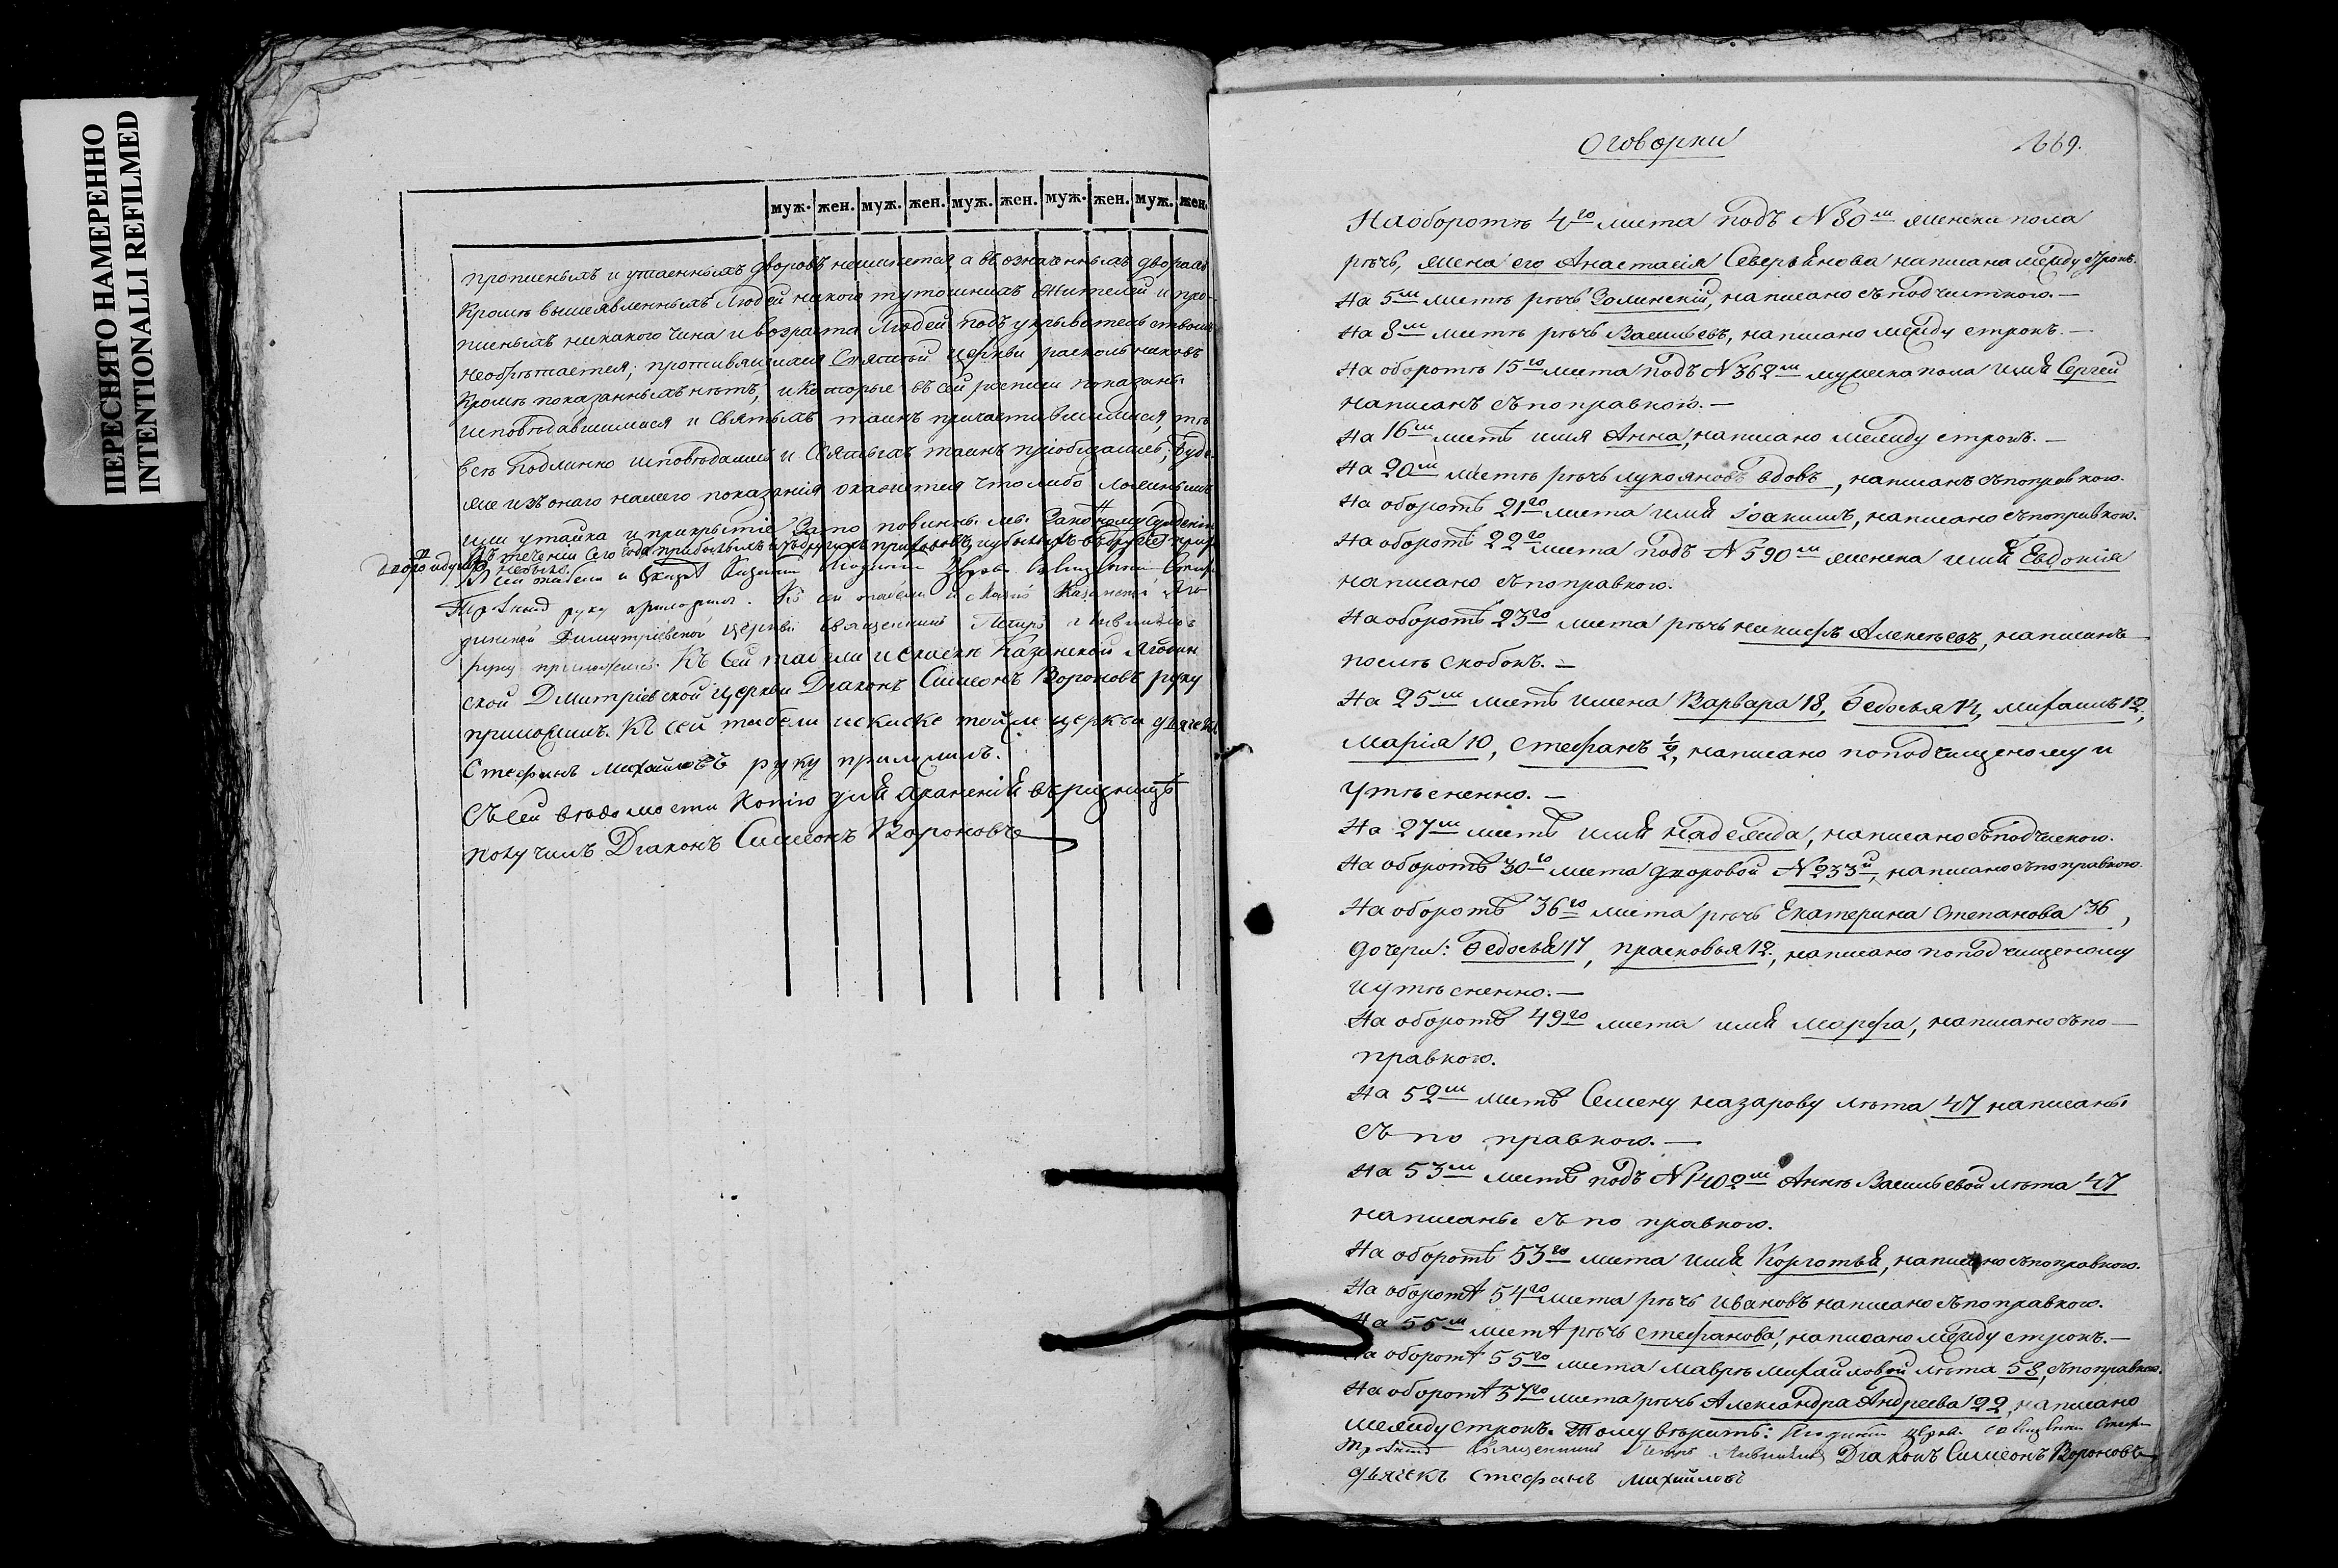 ПЕРЕСНЯТО НАМЕРЕННО
INTENTIONALLI REFILMED
муж. жен. муж. жен. муж. жен. муж. жен. муж. жен.
прописныхъ и утаенныхъ дворовъ неимеется, а въ означенныхъ дворахъ
Кромѣ вышеявленныхъ Людей никого тутошнихъ Жителей и про-
писныхъ никакого чина и возраста Людей подъ укрывательствомъ
необрѣтается; противящихся Святой Церкви раскольниковъ
Кромѣ показанныхъ нѣтъ, и которые въ сей росписи показаны
исповѣдавшимися и Святыхъ таинъ причастившимися, тѣ
всѣ подлинно исповѣдались и Святыхъ таинъ пріобщались; буде
же изъ онаго нашего показанія окажется что либо ложнымъ
или утайка и прикрытіе За то повинны мы Законному Сужденію
Въ теченіи сего года прибылыхъ изъ другихъ приходовъ, и убылыхъ въ другіе
небыло.
руку приложилъ. Къ сей табели и сказкѣ Казанской Яго-
динской Димитріевской церкви Священникъ Петръ
руку приложилъ. Къ Сей табели и сказкѣ Казанской Ягодин
ской Дмитріевской Церкви Діаконъ Симеонъ Вороновъ руку
приложилъ. Къ сей табели искаске тойже церкви дьячекъ
Стефанъ Михайловъ руку приложилъ.
Съ Сей вѣдомости Копію для храненія въ ризницѣ
получилъ Діаконъ Симеонъ Вороновъ
Оговорки 1669.
На оборотѣ 4го листа подъ N 80м женска пола
рѣчь, жена его Анастасія Северьянова написана между строкъ.
На 5м листѣ рѣчь Залинскій, написано съ подчисткою.—
На 8м листѣ рѣчь Васильевъ, написано между строкъ.—
На оборотѣ 15го листа подъ N 362м мужска пола имя Сергей
написанъ съ поправкою.—
На 16м листѣ имя Анна, написано между строкъ.—
На 20м листѣ рѣчь лукояновъ вдовъ, написанъ съ поправкою.
На оборотѣ 21го листа имя Іоакимъ, написано съ поправкою.
На оборотѣ 22го листа подъ N 590м женска имя Евдокія
написано съ поправкою.
На оборотѣ 23го листа рѣчь никифъ Алексѣевъ, написанъ
послѣ скобокъ.—
На 25м листѣ имена Варвара 18, Ѳедосья 14, михаилъ 12,
Марія 10, Стефанъ ½, написано по подчищеному и
утѣсненно.—
На 27м листѣ имя Надежда, написано съ подчискою.
На оборотѣ 30го листа дворовой N 233й, написано съ поправкою.
На оборотѣ 36го листа рѣчь Екатерина Степанова 36,
дочери: Ѳедосья 17, прасковья 12, написано по подчищеному
и утѣсненно.—
На оборотѣ 49го листа имя Марфа, написано съ по—
правкою.
На 52м листѣ Семену назарову лѣта 47 написаны
съ по правкою.—
На 53м листѣ подъ N 1402м Аннѣ Васильевой лѣта 47
написаны съ по правкою.
На оборотѣ 53го листа имя, написано съ поправкою.
На оборотѣ 54го листа рѣчь Ивановъ написано съ поправкою.
На 55м листѣ рѣчь Стефанова, написано между строкъ.—
На оборотѣ 55го листа Маврѣ Михайловой лѣта 58, съ поправкою.
На оборотѣ 57го листа рѣчь Александра Андреева 22, написано
между строкъ. Тому вѣрить:
Священникъ Петръ Діаконъ Симеонъ Вороновъ
дьячекъ Стефанъ Михайловъ